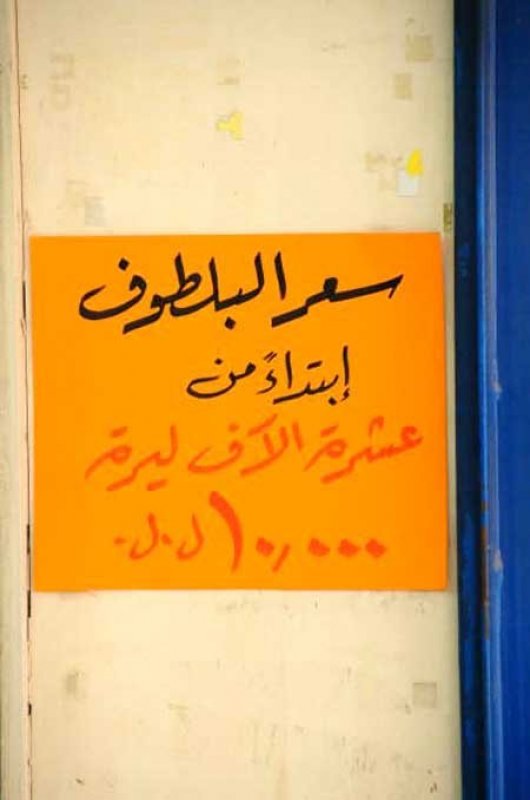 سعر البلطوف
إبتداءً من
عشرة الآف ليرة
١٠,٠٠٠ ل.ل.